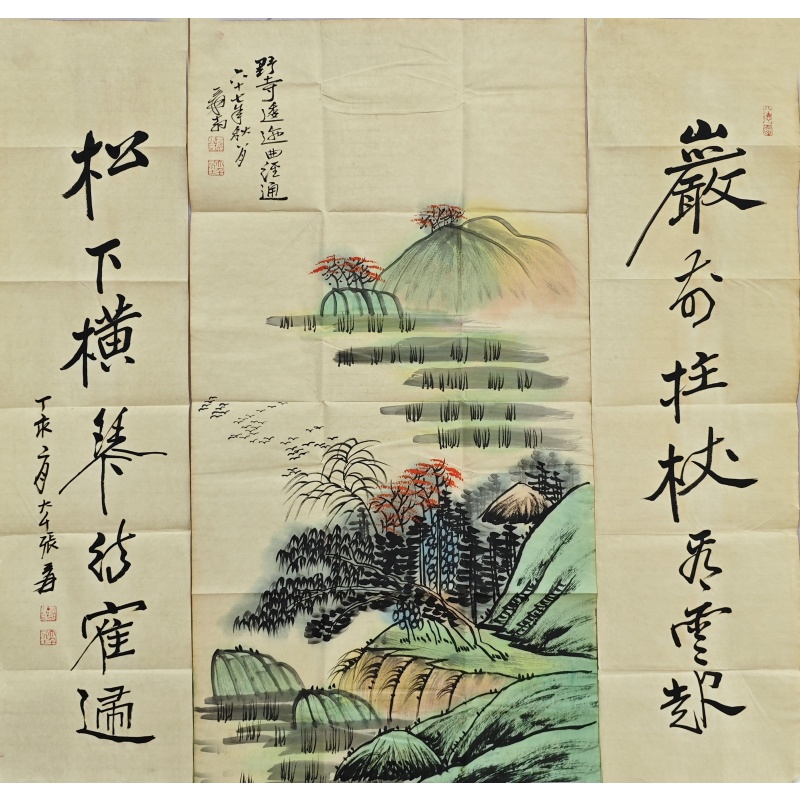 巖前拄杖看雲起
野寺逶迤曲徑通
六十七年秋月
松下橫琴待寉歸
丁亥二月大千張爰